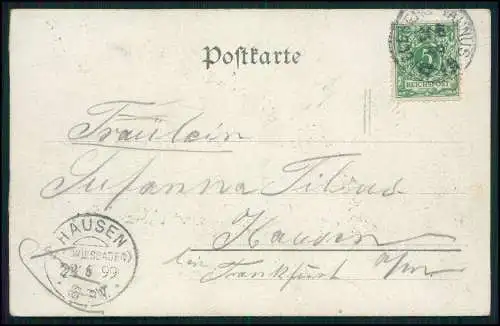 Postkarte
(TAUNUS)
5
REICHSPOST
Fräulein
Susanna Tilius
Hausen
bei Frankfurt a/m
HAUSEN
(WIESBADEN)
22 6 99
8-9V.